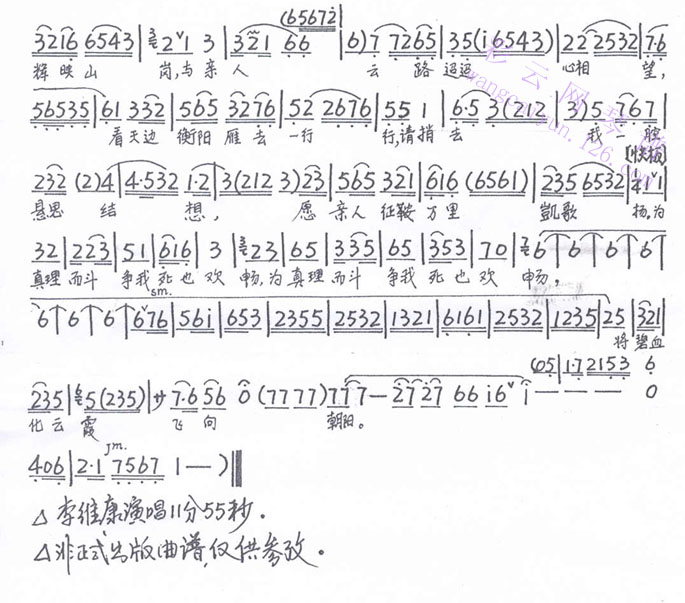 (65672̇
3̲2̲1̲6̲ 6543 | 2ˇ1 3 | 321 66 | 6) 7 7265 | 35 (i 6543) | 22 2532 | 7·6
辉映山 岗,与亲人 云路迢迢 心相望,
56535 | 61 332 | 565 3276 | 52 2676 | 55 1 | 6·5 3 (212 | 3) 5 767 |
看天边 衡阳雁去 一行 行,请捎去 我一腔
[快板]
232 (2) 4 | 4·532 1·2 | 3 (212 3) 23 | 565 321 | 616 (6561) | 235 6532 | 1ˇ1
悬思 结 想, 愿亲人征鞍万里 凯歌 扬。为
32 | 223 | 51 | 616 | 3 | 23 | 65 | 335 | 65 | 353 | 70 | 6 6 6 6
真理而斗 争我死也欢 畅,为真理而斗 争我死也欢 畅,
sm.
6 6 6 6ˇ76 | 56i | 653 | 2355 | 2532 | 1321 | 6161 | 2532 | 1235 | 25 | 321
将碧血
(05 | 1·7 2153 6
235 | 5 (235) | 7·6 56 0 (7777) 777 — 2727 66 i6ˇ i — — — 0
化云 霞 飞向 朝阳。
jm.
406 | 2·1 7567 1 — )
△李维康演唱11分55秒。
△非正式出版曲谱,仅供参改。
彩云网琴